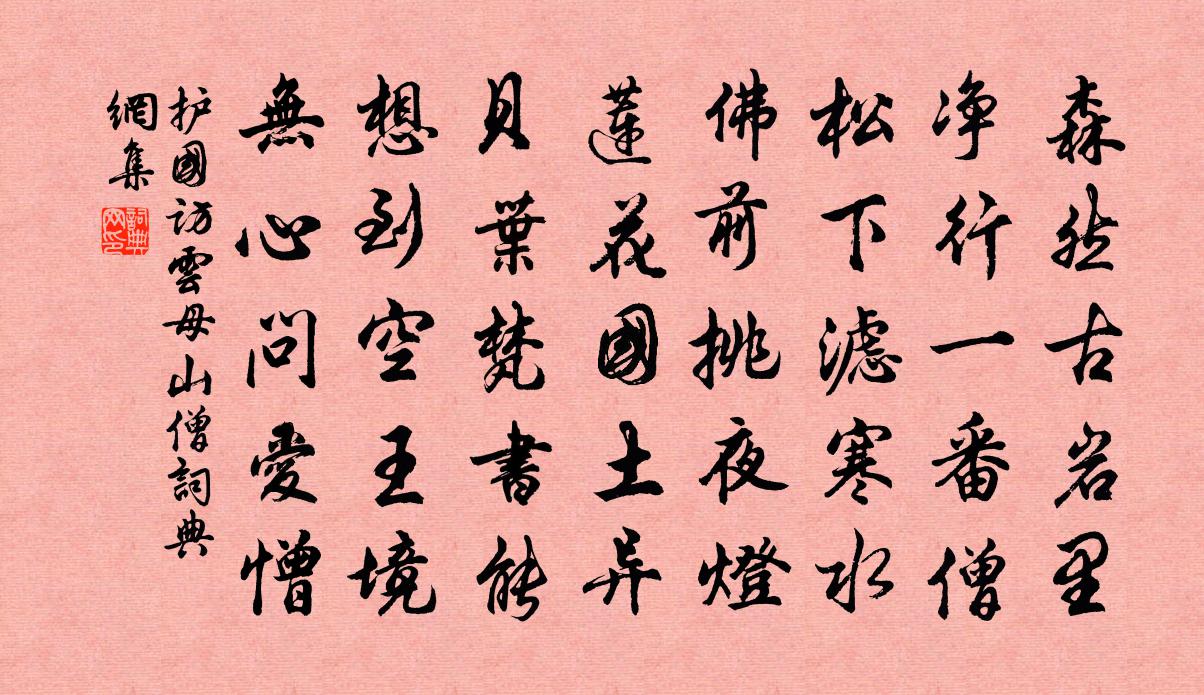 森然古岩里
净行一番僧
松下滤寒水
佛前挑夜燈
蓮花國土异
貝葉梵書能
想到空王境
無心問愛憎
护國訪雲母山僧詞典
網集
詞典
网印